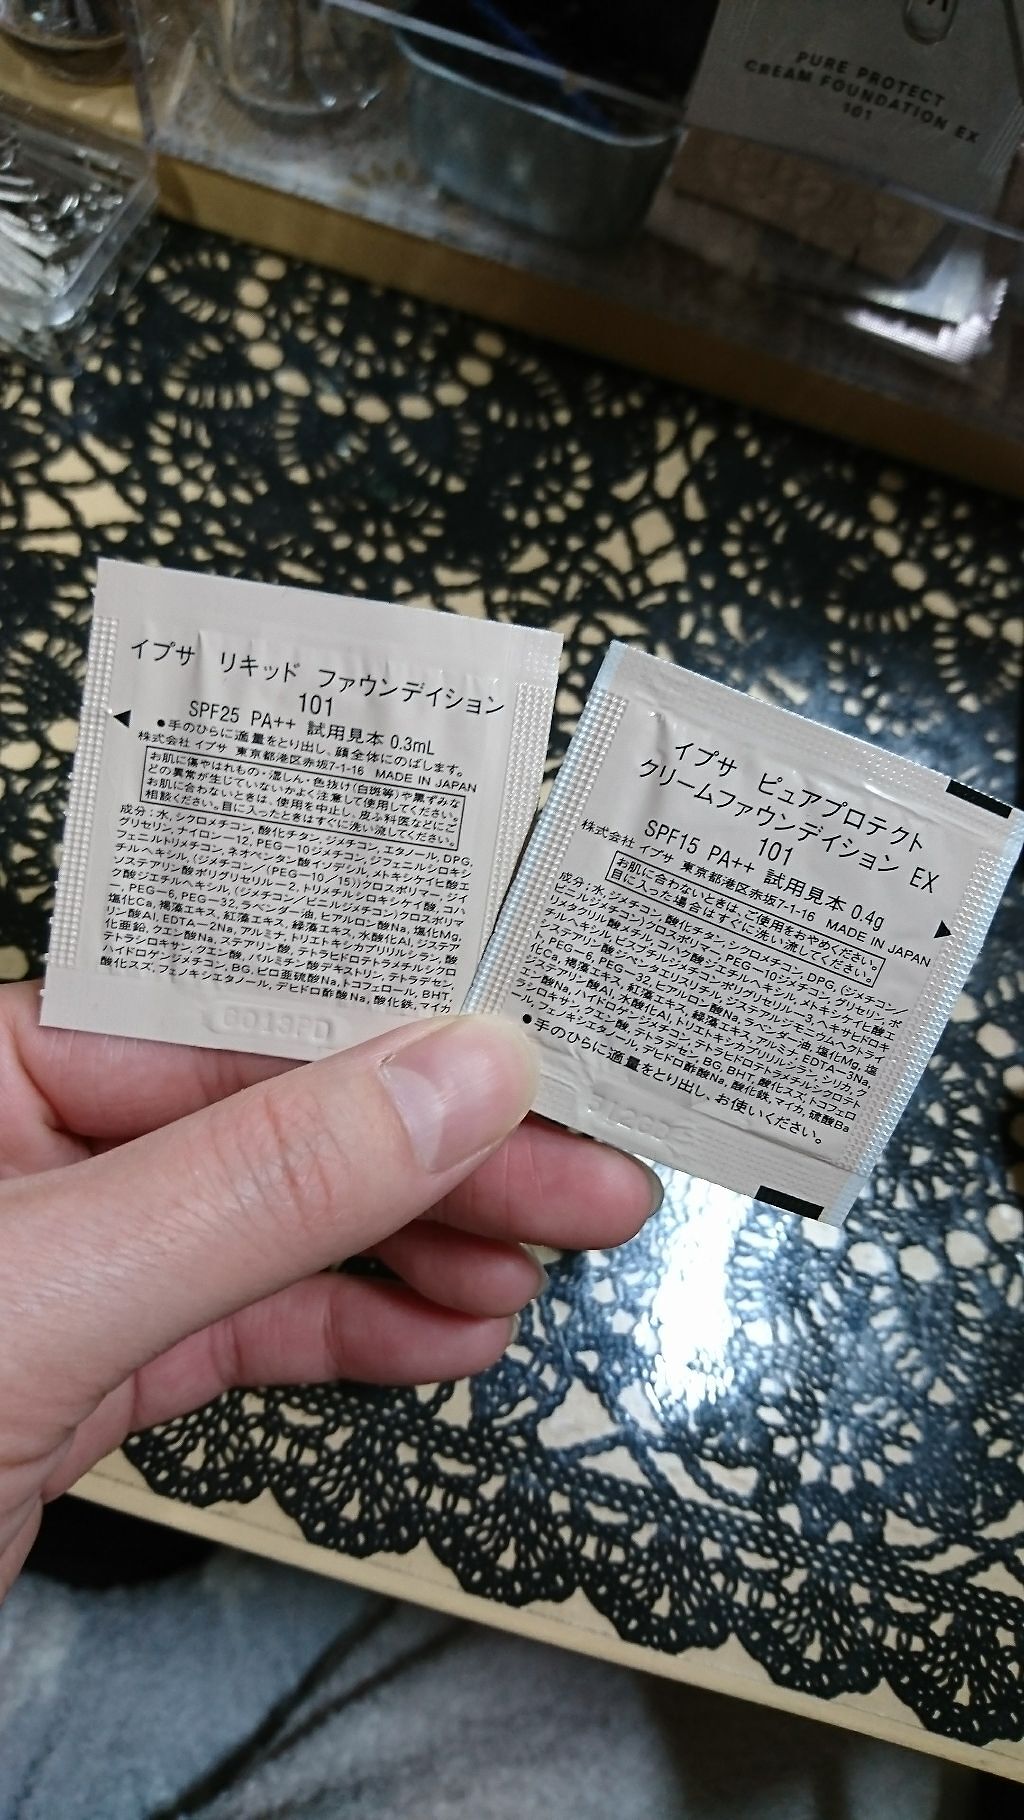 PURE PROTECT
CREAM FOUNDATION EX
101
イプサ リキッド ファウンデイション
101
SPF25 PA++ 試用見本 0.3mL
●手のひらに適量をとり出し、顔全体にのばします。
株式会社 イプサ 東京都港区赤坂7-1-16 MADE IN JAPAN
お肌に傷やはれもの・湿しん・色抜け(白斑等)や黒ずみな
どの異常が生じていないかよく注意して使用してください。
お肌に合わないときは、使用を中止し、皮ふ科医などにご
相談ください。目に入ったときはすぐに洗い流してください。
成分:水, シクロメチコン, 酸化チタン, ジメチコン, エタノール, DPG,
グリセリン, ナイロン-12, PEG-10ジメチコン, ジフェニルシロキシ
フェニルトリメチコン, ネオペンタン酸イソデシル, メトキシケイヒ酸エ
チルヘキシル, (ジメチコン/(PEG-10/15))クロスポリマー, ジイ
ソステアリン酸ポリグリセリル-2, トリメチルシロキシケイ酸, コハ
ク酸ジエチルヘキシル, (ジメチコン/ビニルジメチコン)クロスポリマ
ー, PEG-6, PEG-32, ラベンダー油, ヒアルロン酸Na, 塩化Mg,
塩化Ca, 褐藻エキス, 紅藻エキス, 緑藻エキス, 水酸化Al, ジステア
リン酸Al, EDTA-2Na, アルミナ, トリエトキシカプリリルシラン, 酸
化亜鉛, クエン酸Na, ステアリン酸, テトラヒドロテトラメチルシクロ
テトラシロキサン, クエン酸, パルミチン酸デキストリン, テトラデセン,
ハイドロゲンジメチコン, BG, ピロ亜硫酸Na, トコフェロール, BHT,
酸化スズ, フェノキシエタノール, デヒドロ酢酸Na, 酸化鉄, マイカ
イプサ ピュアプロテクト
クリームファウンデイション EX
101
SPF15 PA++ 試用見本 0.4g
株式会社 イプサ 東京都港区赤坂7-1-16 MADE IN JAPAN
お肌に合わないときは、ご使用をおやめください。
目に入った場合はすぐに洗い流してください。
成分:水, ジメチコン, 酸化チタン, シクロメチコン, DPG, (ジメチコン/
ビニルジメチコン)クロスポリマー, PEG-10ジメチコン, グリセリン, ポ
リメタクリル酸メチル, コハク酸ジエチルヘキシル, メトキシケイヒ酸エ
チルヘキシル, ビスブチルジメチコンポリグリセリル-3, ヘキサヒドロキ
システアリン酸ジペンタエリスリチル, ジステアルジモニウムヘクトライ
ト, PEG-6, PEG-32, ヒアルロン酸Na, ラベンダー油, 塩化Mg, 塩
化Ca, 褐藻エキス, 紅藻エキス, 緑藻エキス, アルミナ, EDTA-3Na,
ステアリン酸Al, 水酸化Al, トリエトキシカプリリルシラン, シリカ, ク
エン酸Na, ハイドロゲンジメチコン, テトラヒドロテトラメチルシクロテト
ラシロキサン, クエン酸, テトラデセン, BG, BHT, 酸化スズ, トコフェロ
ール, フェノキシエタノール, デヒドロ酢酸Na, 酸化鉄, マイカ, 硫酸Ba
●手のひらに適量をとり出し、お使いください。